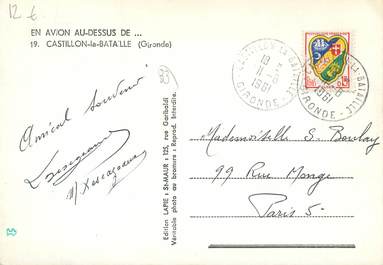 12 €
EN AVION AU-DESSUS DE ...
19. CASTILLON-la-BATAILLE (Gironde)
CASTILLON-LA-BATAILLE
13
11-8
1961
GIRONDE
1961
GIRONDE
Amical Souvenir
Mademoiselle S. Boulay
99 Rue Monge
Paris 5
Edition LAPIE : St-MAUR : 125, rue Garibaldi
Véritable photo au bromure : Reprod. Interdite.